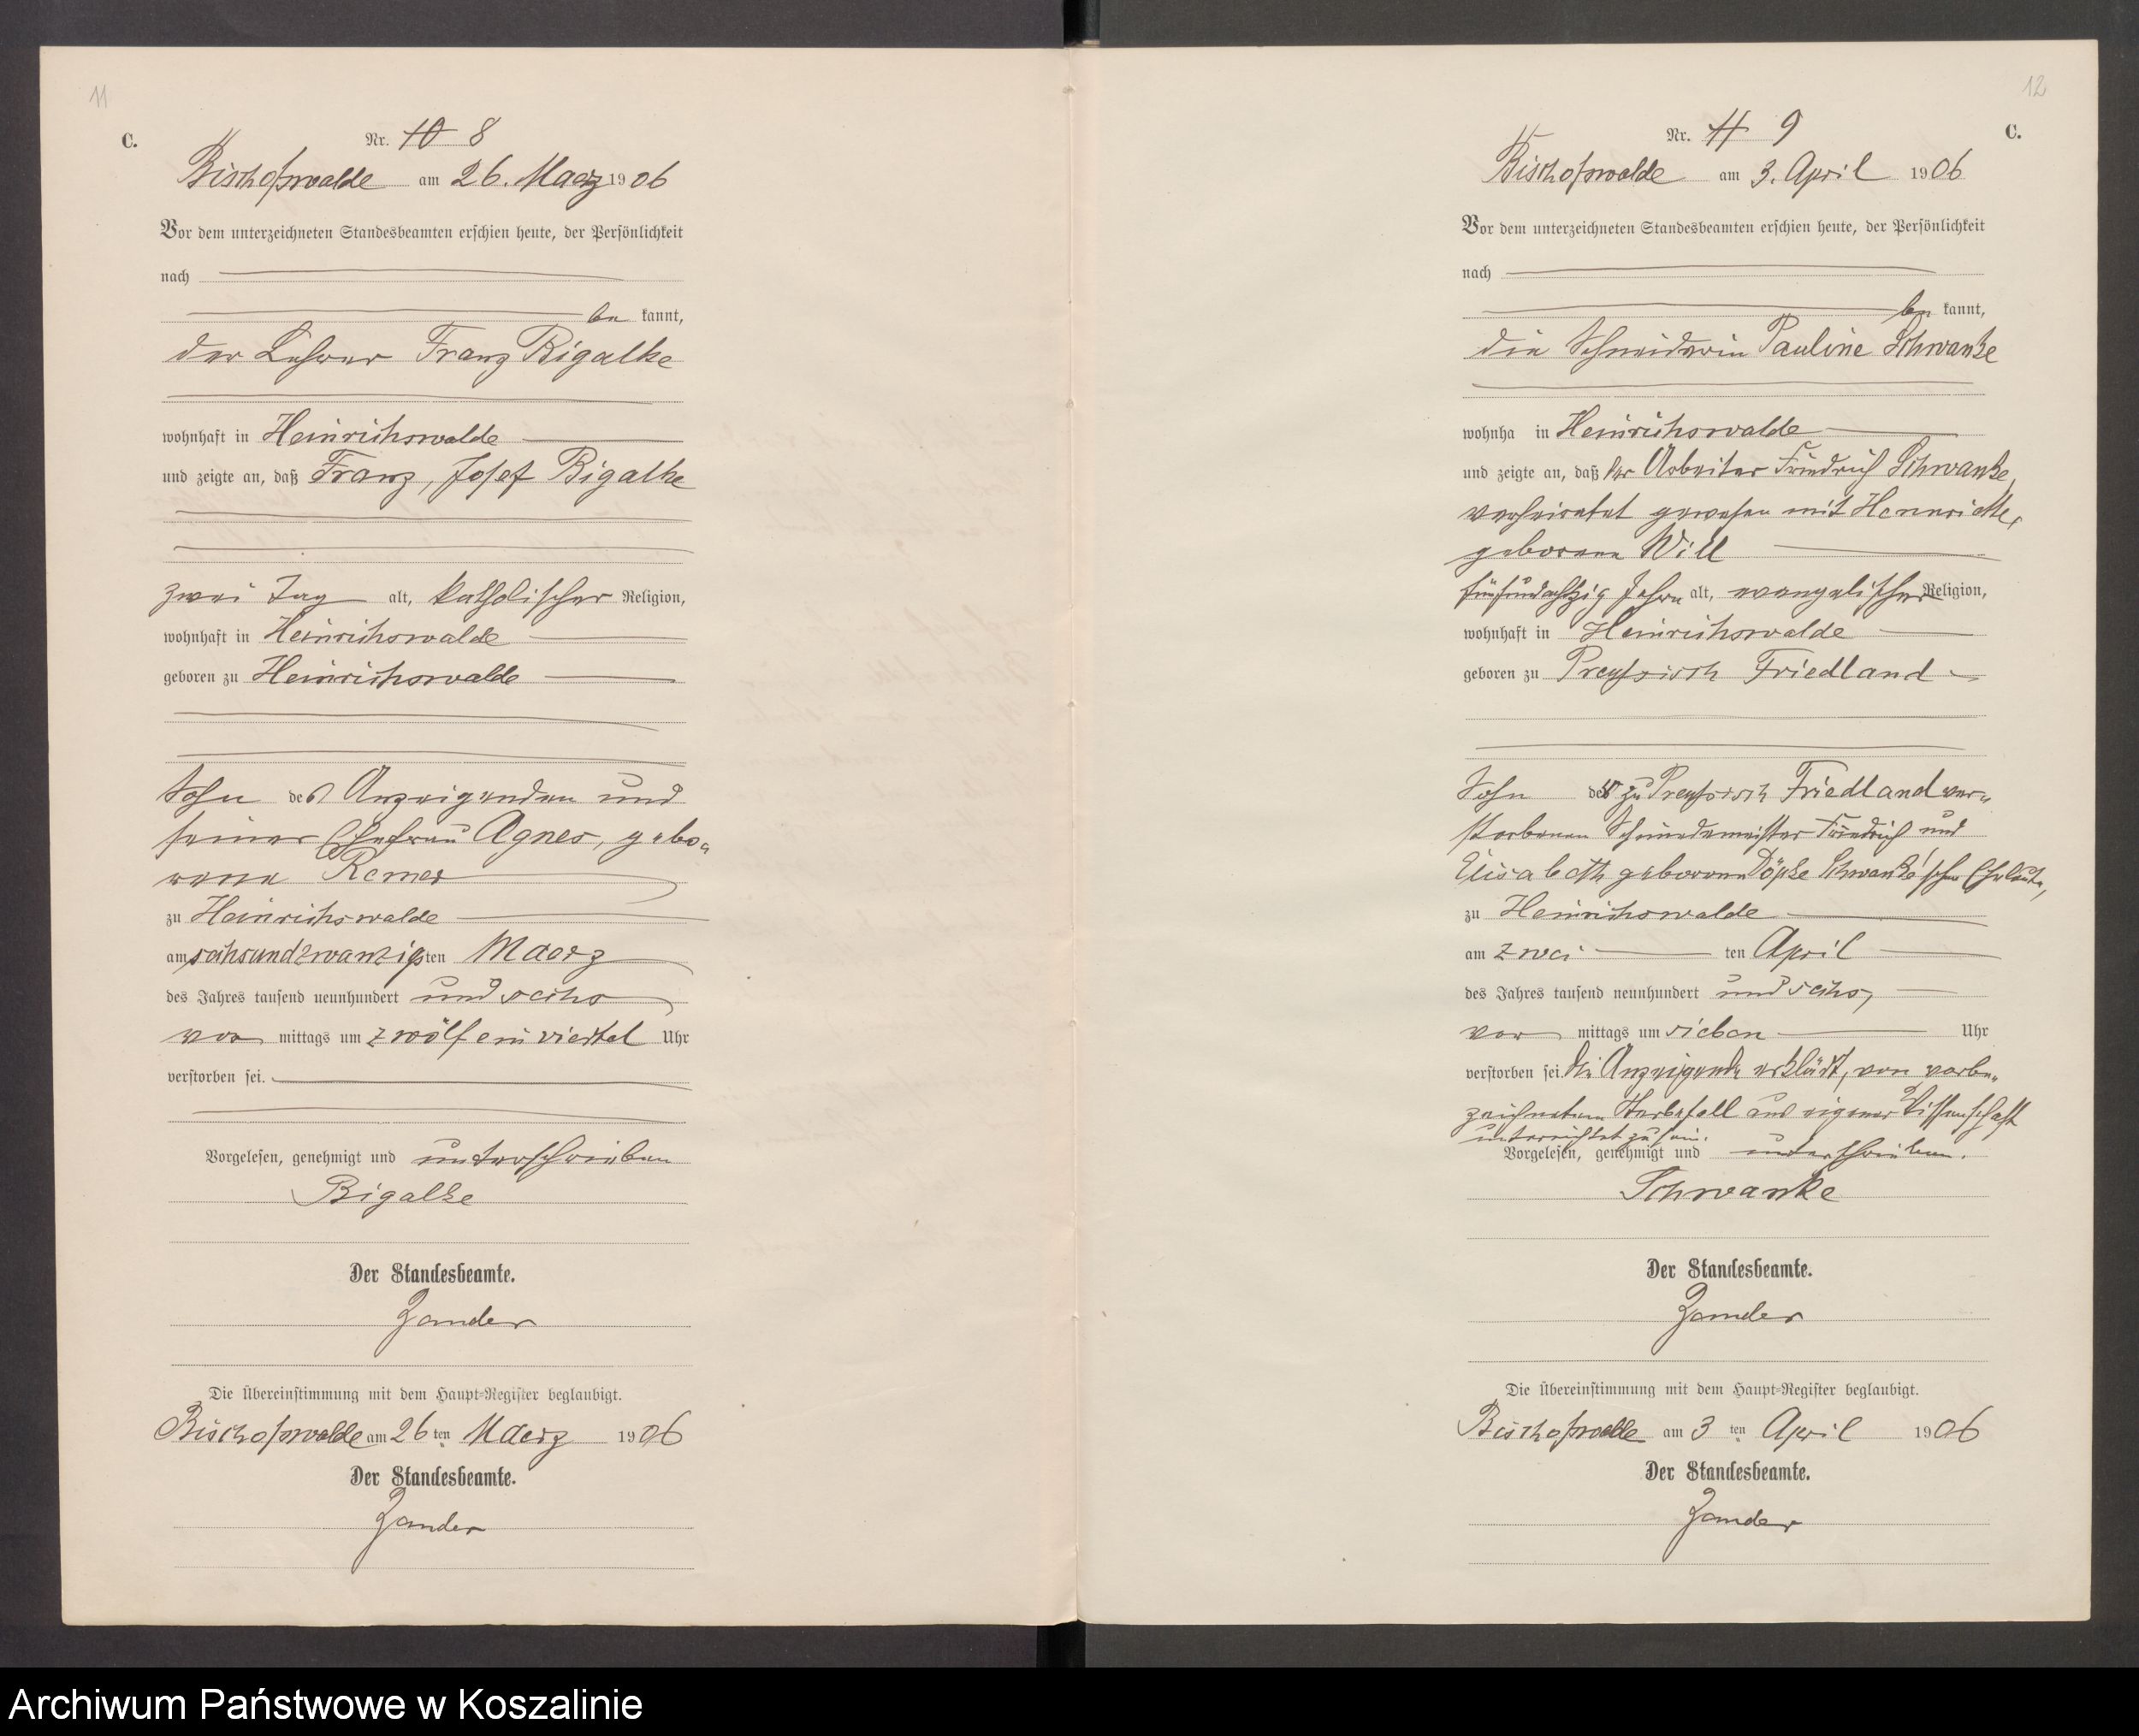 11
C.
Nr. 10 8
Bischofswalde am 26. Maerz 1906
Vor dem unterzeichneten Standesbeamten erschien heute, der Persönlichkeit
nach
be kannt,
der Lehrer Franz Bigalke
wohnhaft in Heinrichswalde
und zeigte an, daß Franz, Josef Bigalke
zwei Tag alt, katholischer Religion,
wohnhaft in Heinrichswalde
geboren zu Heinrichswalde
Sohn des Anzeigenden und
seiner Ehefrau Agnes, gebo-
rene Remer
zu Heinrichswalde
am sechsundzwanzigsten Maerz
des Jahres tausend neunhundert und sechs
vor mittags um zwölf ein viertel Uhr
verstorben sei.
Vorgelesen, genehmigt und unterschrieben
Bigalke
Der Standesbeamte.
Zander
Die Übereinstimmung mit dem Haupt-Register beglaubigt.
Bischofswalde am 26 ten Maerz 1906
Der Standesbeamte.
Zander
12
C.
Nr. 11 9
Bischofswalde am 3. April 1906
Vor dem unterzeichneten Standesbeamten erschien heute, der Persönlichkeit
nach
be kannt,
die Schneiderin Pauline Schwanke
wohnha in Heinrichswalde
und zeigte an, daß der Arbeiter Friedrich Schwanke,
verheiratet gewesen mit Henriette,
geborene Will
fünfundachtzig Jahre alt, evangelischer Religion,
wohnhaft in Heinrichswalde
geboren zu Preussisch Friedland
Sohn des zu Preussisch Friedland ver-
storbenen Schmiedemeister Friedrich und
Elisabeth geborene Döpke Schwanke'schen Eheleute,
zu Heinrichswalde
am zwei ten April
des Jahres tausend neunhundert und sechs,
vor mittags um sieben Uhr
verstorben sei. Die Anzeigende erklärt, von vorbe-
zeichnetem Sterbefall aus eigener Wissenschaft
unterrichtet zu sein.
Vorgelesen, genehmigt und unterschrieben.
Schwanke
Der Standesbeamte.
Zander
Die Übereinstimmung mit dem Haupt-Register beglaubigt.
Bischofswalde am 3 ten April 1906
Der Standesbeamte.
Zander
Archiwum Państwowe w Koszalinie